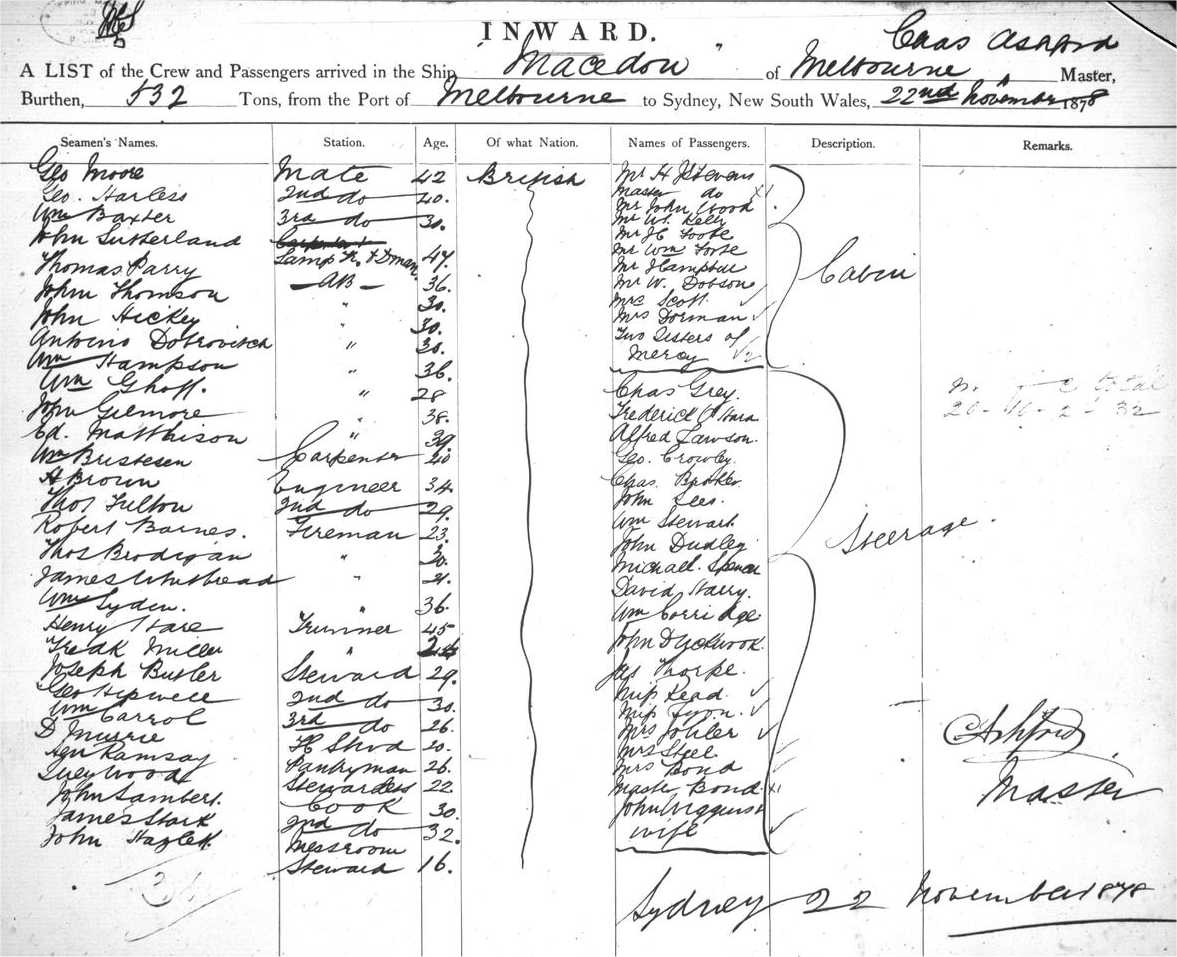 INWARD.
Chas Ashford
A LIST of the Crew and Passengers arrived in the Ship, Macedon of Melbourne Master,
Burthen, 532 Tons, from the Port of Melbourne to Sydney, New South Wales, 22nd November 1878
Seamen's Names. Station. Age. Of what Nation. Names of Passengers. Description. Remarks.
Geo Moore Mate 42 British Mr H Stevens
Geo. Harless 2nd do 40. Master do
Wm Baxter 3rd do 30. Mr John Wood
John Sutherland Mr W. Kelly
Lamp Tr. 47. Mr J C Foote
Thomas Parry AB 36. Mr Wm Foote
John Thomson " 30. Mr Hampton
John Hickey " 30. Mr W. Dobson
Antonio Dobrovitch " 30. Mrs Scott
Wm Hampson " 36. Mrs Dorman
Wm Ghoff. " 28 Two Sisters of
Mercy
Cabin
John Gilmore " 38. Chas Grey.
Ed. Matthison " 39. Frederick O'Hara
Wm Bristesen Carpenter 40 Alfred Lawson.
A Brown Engineer 34 Geo. Crowley.
Thos Fulton 2nd do 29. Chas.
Robert Barnes. Fireman 23. John Lees.
Thos Brodigan " 30. Wm Stewart.
James Whitbread " John Dudley
Wm Lyden. " 36. Michael Spencer
Henry Hare Trimmer 45 David Harry.
Fredk Miller " Wm Corridge
Joseph Butler Steward 29. John
Geo Hipwell 2nd do 30. Jas Thorpe.
Wm Carrol 3rd do 26. Miss Read
D Murrie 20. Miss
Ramsay Pantryman 26. Mrs
Lucy Wood Stewardess 22 Mrs Steel
John Lambert. Cook 30. Mrs Bond
James Stark 2nd do 32. Master Bond
John Hazlett. Messroom John
Steward 16. wife
Steerage.
total
20 - 10 - 2 - 32
C Ashford
Master
Sydney 22 November 1878